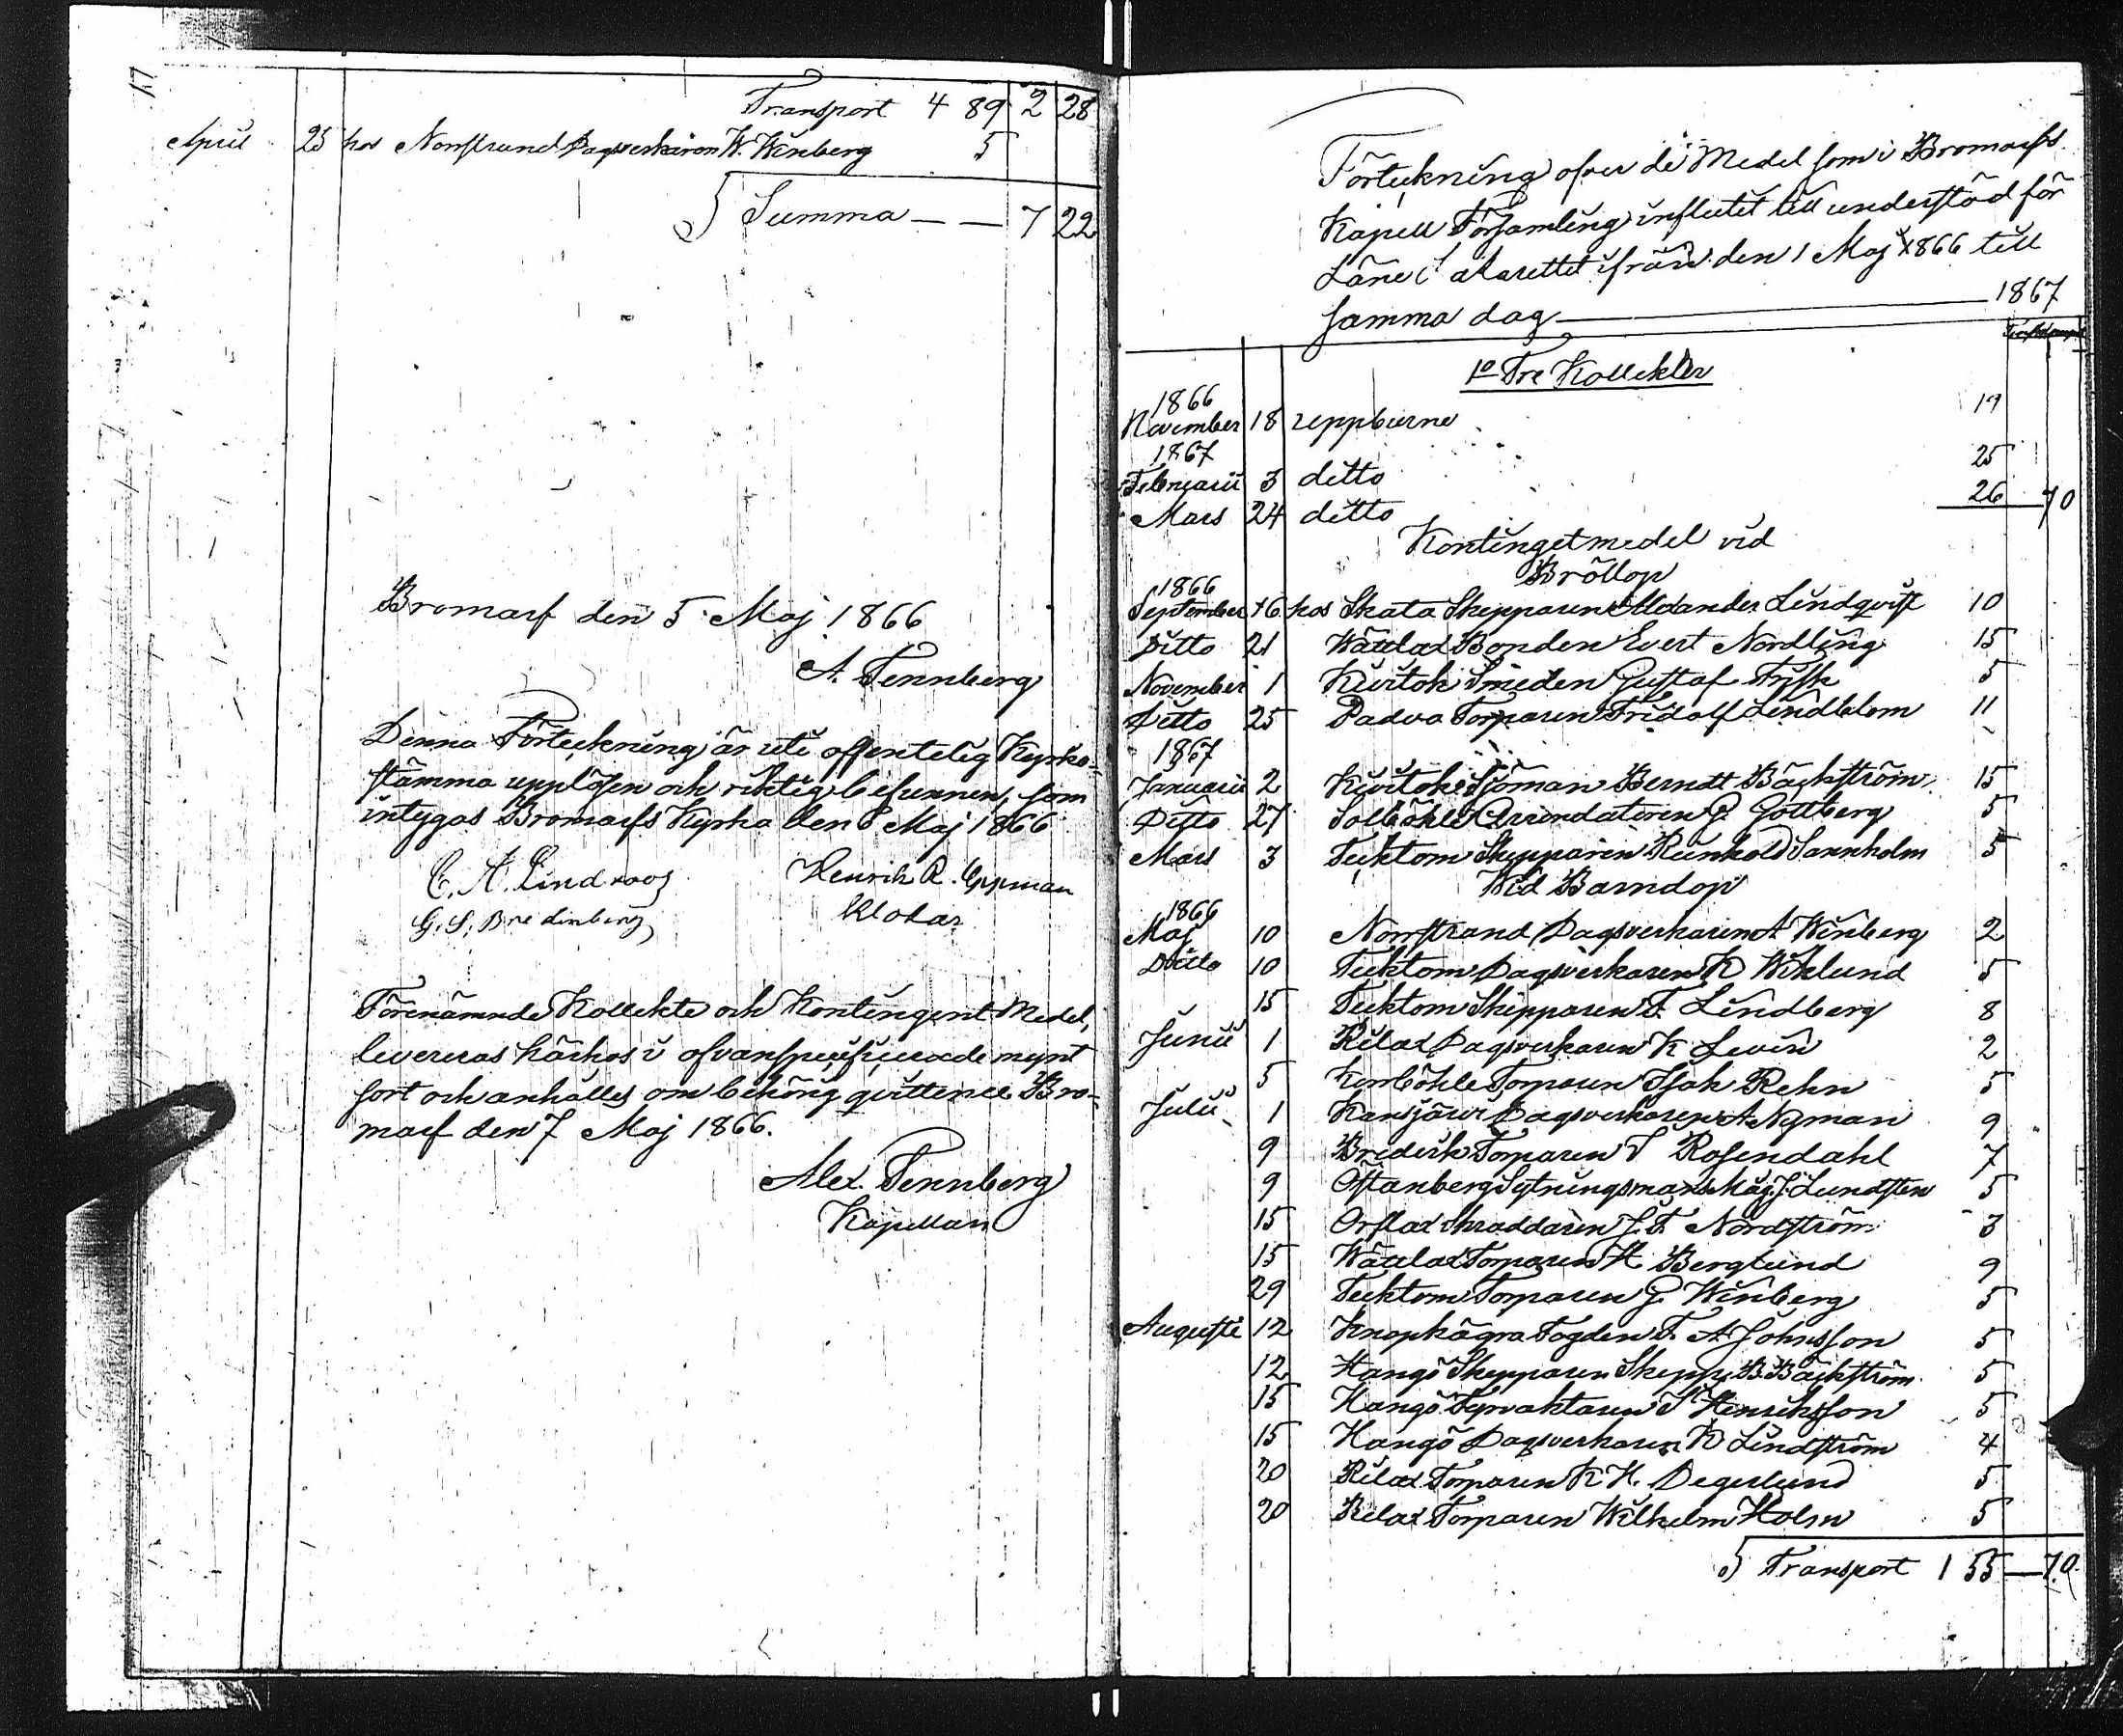 17
Transport 4 89 2 28
April 25 hos Norrstrand Dagsverkaren W. Winberg 5
Summa — — 7 22
Bromarf den 5 Maj 1866
A. Tennberg
Denna Förteckning är uti offentelig Kyrko-
stämma uppläsen och riktig befunnen, som
intygas Bromarfs Kyrka den 6 Maj 1866
C. A. Lindroos Henrik R. Eppman
G. S. Bredenberg Klokar
Förenämnde Kollekte och Kontingent Medel,
levereras härhos i ofvanspecificerade mynt
sort och anhålles om behörig quittence Bro-
marf den 7 Maj 1866.
Alex. Tennberg
Kapellan
Förteckning ofver de Medel som i Bromarfs
Kapell Församling influtit till understöd för
Läne Lazarettet ifrån den 1 Maj 1866 till
samma dag — 1867
1o Tre Kollekter
1866
November 18 uppburne 19
1867
Februarii 3 ditto 25
Mars 24 ditto 26 70
Kontingetmedel vid
Bröllop
1866
September 16 hos Skata Skepparen Aldander Lindqvist 10
Ditto 21 Wättlax Bonden Evert Nordling 15
November 1 Kivitok Smeden Gustaf Frisk 5
Ditto 25 Padva Torparen Fridolf Lindblom 11
1867
Januarii 2 Kivitok Sjöman Berndt Bäckström 15
Ditto 27 Solböhle Arrendatoren G. Gottberg 5
Mars 3 Tecktom Skepparen Reinhold Sannholm 5
Wid Barndop
1866
Maj 10 Norrstrand Dagsverkaren A Winberg 2
Ditto 10 Tecktom Dagsverkaren K Wiklund 5
15 Tecktom Skepparen F. Lindberg 8
Junii 1 Rilax Dagsverkaren K Levin 2
5 Kirböhle Torparen Isak Rehn 5
Julii 1 Kansjärvi Dagsverkaren A Nyman 9
9 Brederik Torparen F Rosendahl 7
9 Östanberg Sytningsmans Måg J. Lundsten 5
15 Orslax Skraddaren J. F. Nordström 3
15 Wättlax Torparen H. Berglund 9
29 Tecktom Torparen G. Winberg 5
Augusti 12 Knopkägra Fogden F. A Johnsson 5
12 Hangö Skepparen Skepp. B. Bäckström 5
15 Hangö Fyrvaktaren S Henriksson 5
15 Hangö Dagsverkaren K Lindström 4
20 Rilax Torparen K H. Degerlund 5
20 Rilax Torparen Wilhelm Holm 5
Transport 1 55 — 70